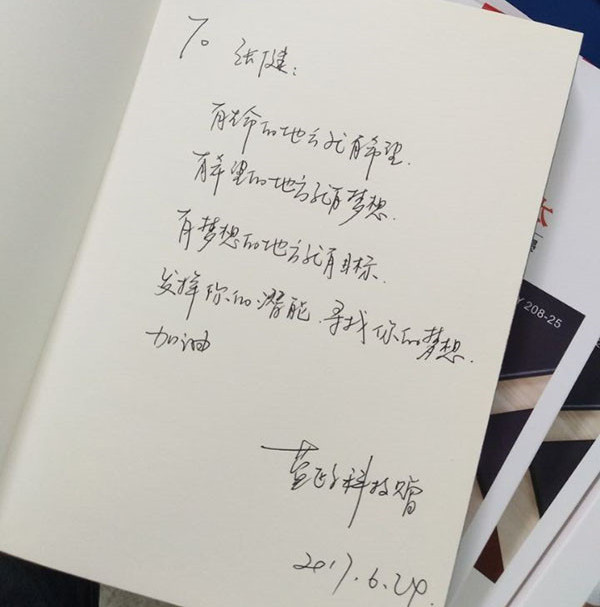 To 张健:
有生命的地方就有希望.
有希望的地方就有梦想.
有梦想的地方就有目标.
发挥你的潜能.寻找你的梦想.
加油
科技赠
2017.6.20.
208-25